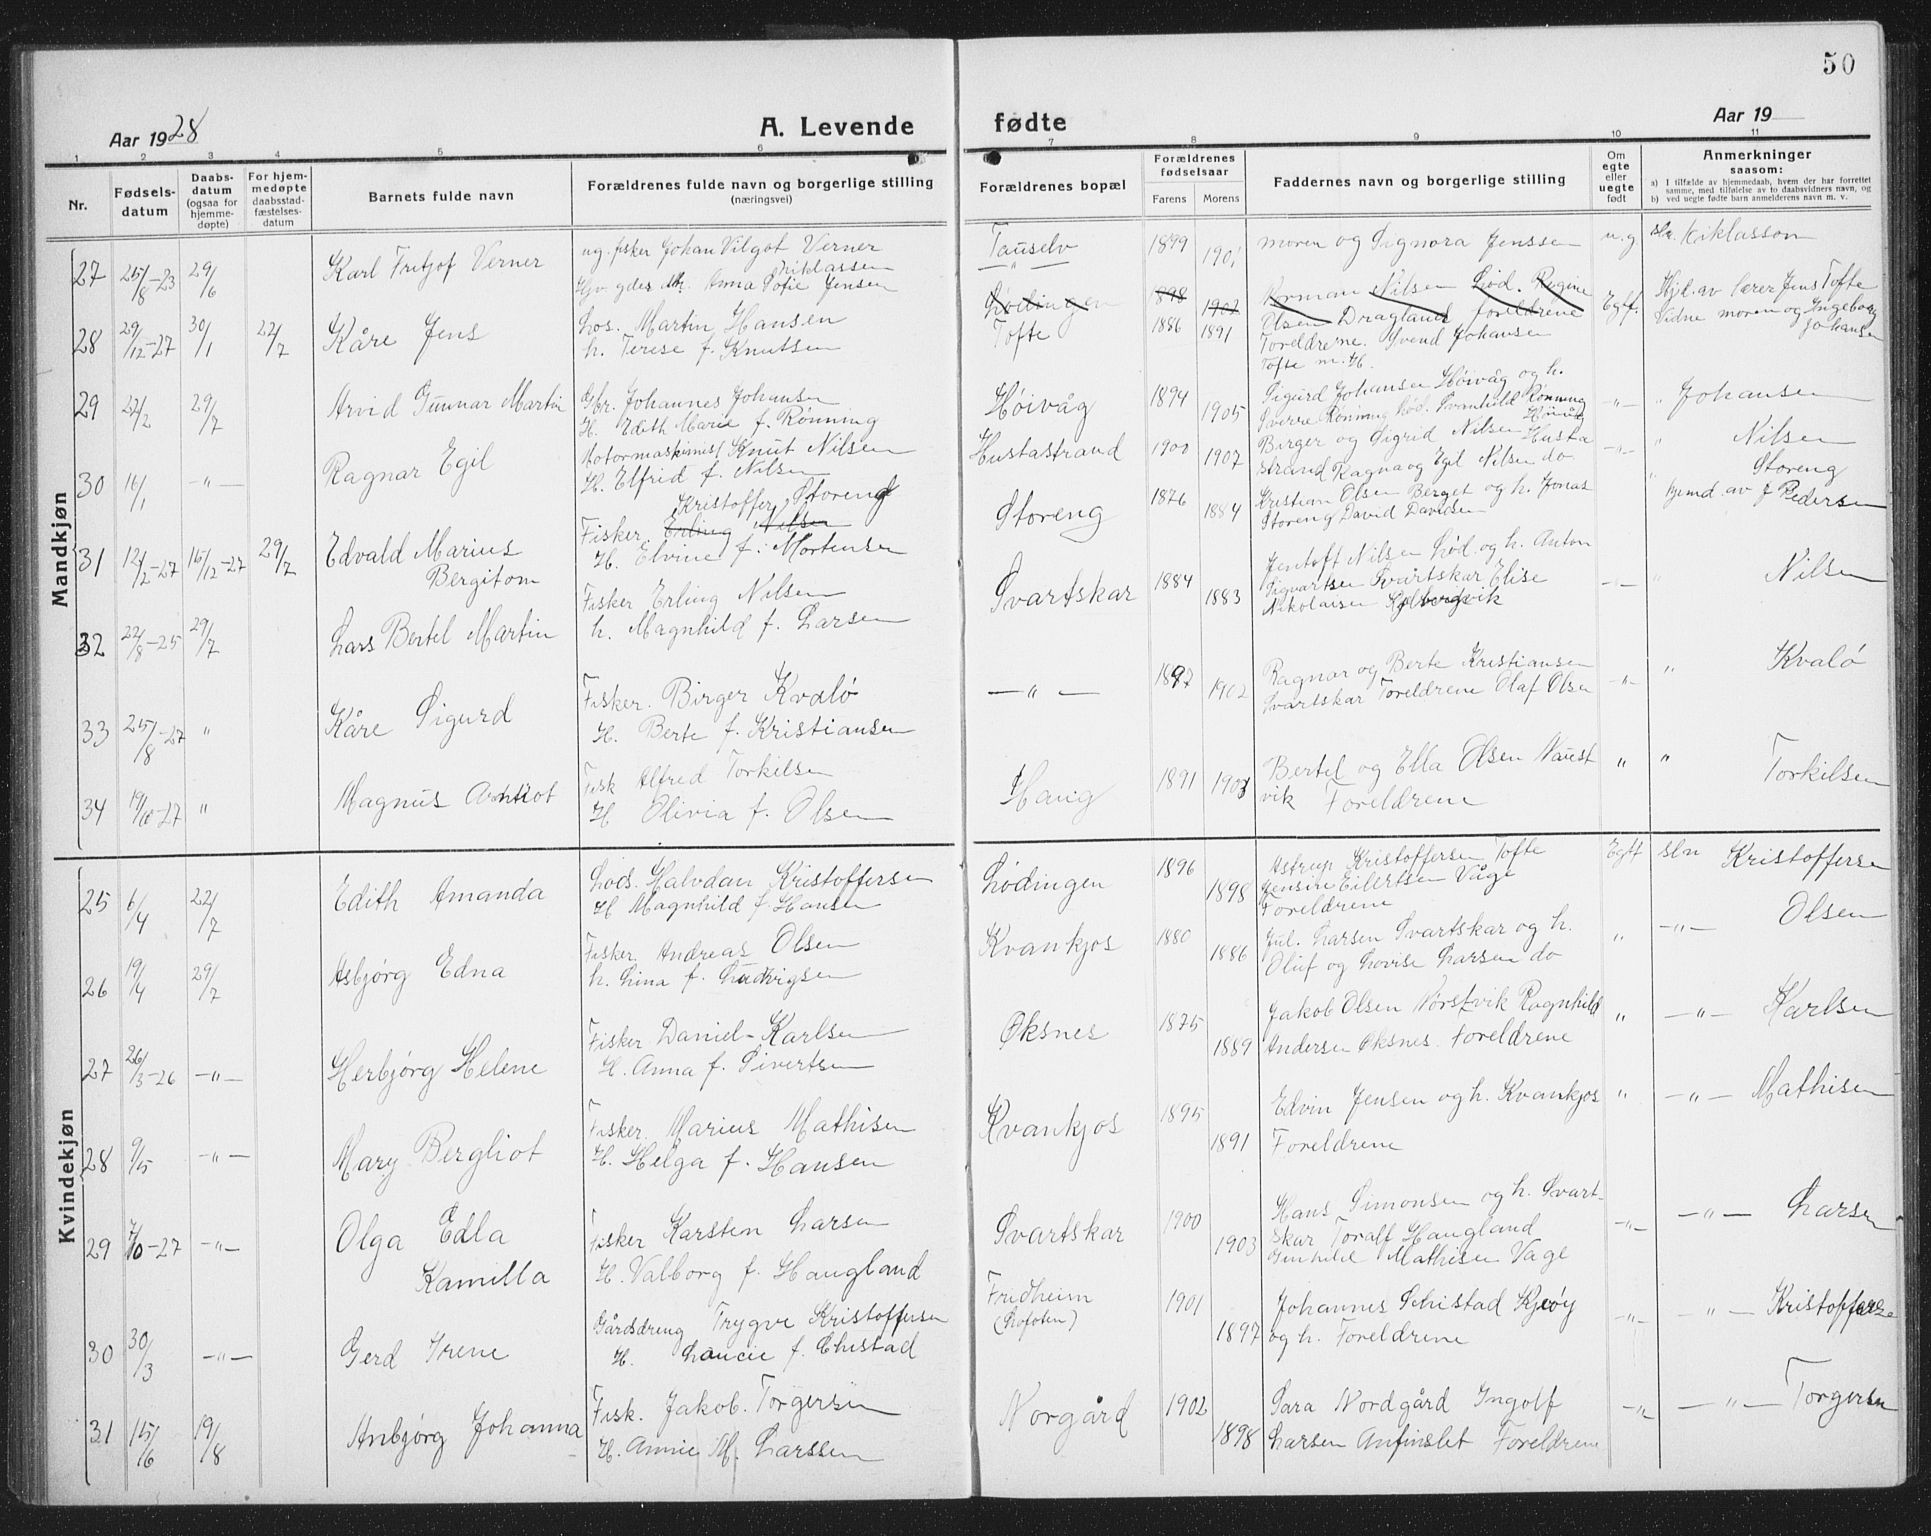 50
Aar 1928
A. Levende
fødte
Aar 19
1 2 3 4 5 6 7 8 9 10 11
Nr.
Fødsels-
datum
Daabs-
datum
(ogsaa for
hjemme-
døpte)
For hjem-
medøpte
daabsstad-
fæstelses-
datum
Barnets fulde navn
Forældrenes fulde navn og borgerlige stilling
(næringsvei)
Forældrenes bopæl
Forældrenes
fødselsaar
Farens Morens
Faddernes navn og borgerlige stilling
Om
egte
eller
uegte
født
Anmerkninger
saasom:
a) I tilfælde av hjemmedaab, hvem der har forrettet
samme, med tilføielse av to daabsvidners navn, og
b) ved uegte fødte barn anmelderens navn m. v.
Mandkjøn
27 25/8-23 29/6 Karl Fritjof Verner
ug. fisker Johan Vilgot Verner
Niklassen
Anna Sofie Jensen
Tauselv 1899 1901
moren og Signora Jenssen
u.g Niklasson
Lødingen 1898 1902
Norman Nilsen Lød. Regine
Olsen Dragland foreldrene
28 29/12-27 30/1 22/7 Kåre Jens
Los. Martin Hansen
h. Terese f. Knutsen
Tofte 1886 1891
Foreldrene. Svend Johansen
Tofte m. H.
Egf.
Hjd. av lærer Jens Tofte
Vidne moren og Ingeborg
Johansen
29 22/2 29/7 Arvid Gunnar Martin
Gbr. Johannes Johansen
H. Edith Marie f. Rønning
Høivåg 1894 1905
Sigurd Johansen Høivåg og h.
Sverre Rønning Lød. Svanhild Rønning
Høivåg
-"- " Johansen
30 16/1 -"- Ragnar Egil
Motormaskinist Knut Nilsen
H. Elfrid f. Nilsen
Hustastrand 1900 1907
Birger og Sigrid Nilsen Husta
strand Ragna og Egil Nilsen do
-"- " Nilsen
31 12/2-27 15/12-27 29/7 Edvald Marius
Bergitom
Kristoffer Storeng
Fisker Erling Nilsen
H. Elvine f. Mortensen
Storeng 1876 1884
Kristian Olsen Berget og h. Jonas
Storeng David Davidsen
" Storeng
hjemd. av J Pedersen
32 22/8-25 29/7 Lars Bertel Martin
Fisker Erling Nilsen
h. Magnhild f. Larsen
Svartskar 1884 1883
Jentoff Nilsen Lød. og h. Anton
Sigvartsen Svartskar Elise
Nikolaisen
-"- " Nilsen
33 25/8-27 " Kåre Sigurd
Fisker. Birger Kvalø
H. Berte f. Kristiansen
-"- 1897 1902
Ragnar og Berte Kristiansen
Svartskar Foreldrene Olaf Olsen
-"- " Kvalø
34 19/10-27 " Magnus
Fisk Alfred Torkilsen
H Olivia f. Olsen
Haug 1891 1903
Bertel og Ella Olsen Naust
vik Foreldrene
" " Torkilsen
Kvindekjøn
25 6/4 22/7 Edith Amanda
Lods. Halvdan Kristoffersen
H Magnhild f. Hansen
Lødingen 1896 1898
Astrup Kristoffersen Tofte
Jensine Eilertsen Våge
Foreldrene
Egtf sln Kristoffersen
26 19/4 29/7 Asbjørg Edna
Fisker Andreas Olsen
h. Lina f. Ludvigsen
Kvankjos 1880 1886
Jul. Larsen Svartskar og h.
Oluf og Lovise Larsen do
" -"- Olsen
27 26/3-26 -"- Herbjørg Helene
Fisker Daniel Karlsen
H. Anna f. Sivertsen
Øksnes 1875 1889
Jakob Olsen Nørstvik Ragnhild
Andersen Øksnes. Foreldrene
" -"- Karlsen
28 9/5 -"- Mary Bergliot
Fisker. Marius Mathisen
H. Helga f. Hansen
Kvankjos 1895 1891
Edvin Jensen og h. Kvankjos
Foreldrene
" -"- Mathisen
29 7/10-27 -"- Olga Edla
Kamilla
Fisker Karsten Larsen
H. Valborg f. Haugland
Svartskar 1900 1903
Hans Simonsen og h. Svart-
skar Toralf Haugland
Gunhild Mathisen Våge
-"- -"- Larsen
30 30/3 -"- Gerd Irene
Gårdsdreng Trygve Kristoffersen
H. Laucie f. Chistad
Fridheim
(Lofoten)
1901 1897
Johannes Schistad Kjeøy
og h. Foreldrene
-"- -"- Kristoffersen
31 15/6 19/8 Anbjørg Johanna
Fisk. Jakob. Torgersen
H. Annie M. Larssen
Norgård 1902 1898
Sara Nordgård Ingolf
Larsen Anfinslet Foreldrene
-"- -"- Torgersen